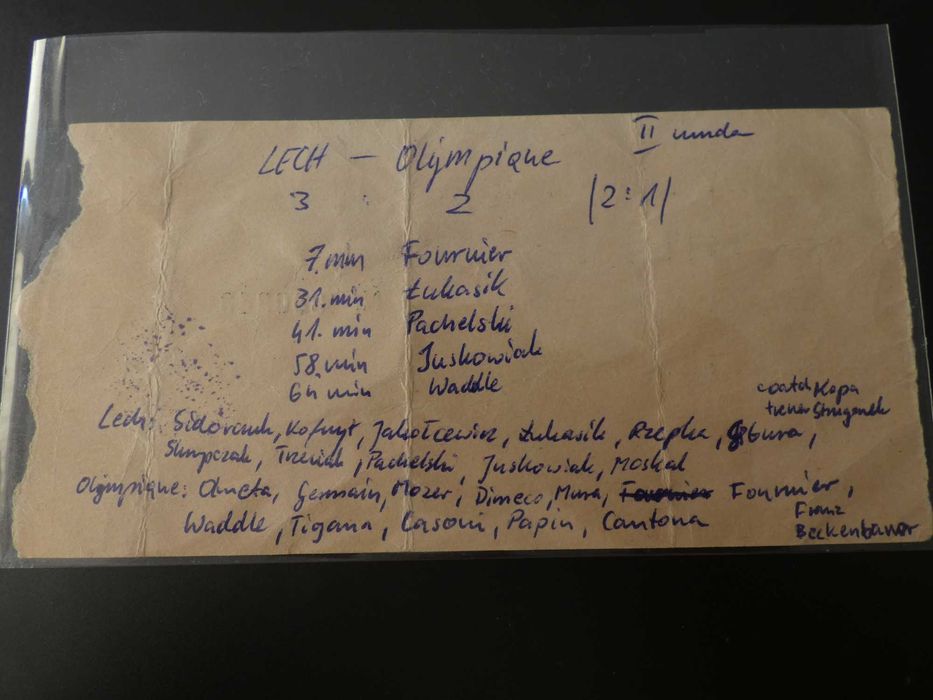 II runda
LECH - Olympique
3 : 2 /2:1/
7.min Fournier
31.min Łukasik
41.min Pachelski
58.min Juskowiak
64 min Waddle
coatch Kopa
trener Strugarek
Lech: Sidorczuk, Kofnyt, Jakołcewicz, Łukasik, Rzepka, Gębura,
Skrzypczak, Trzeciak, Pachelski, Juskowiak, Moskal
Olympique: Olmeta, Germain, Mozer, Dimeco, Mura, Fournier,
Waddle, Tigana, Casoni, Papin, Cantona
Franz
Beckenbauer